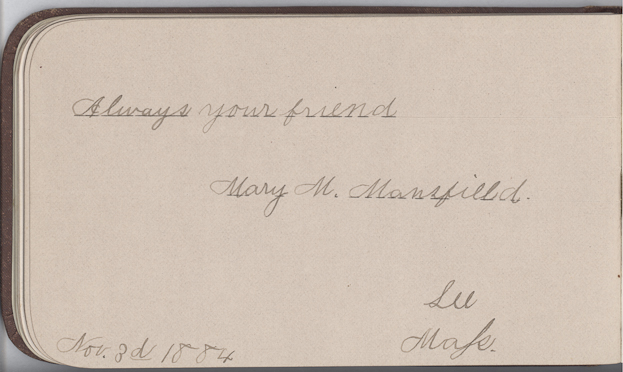 Always your friend
Mary M. Mansfield.
Lee
Maſs.
Nov. 3d 1884